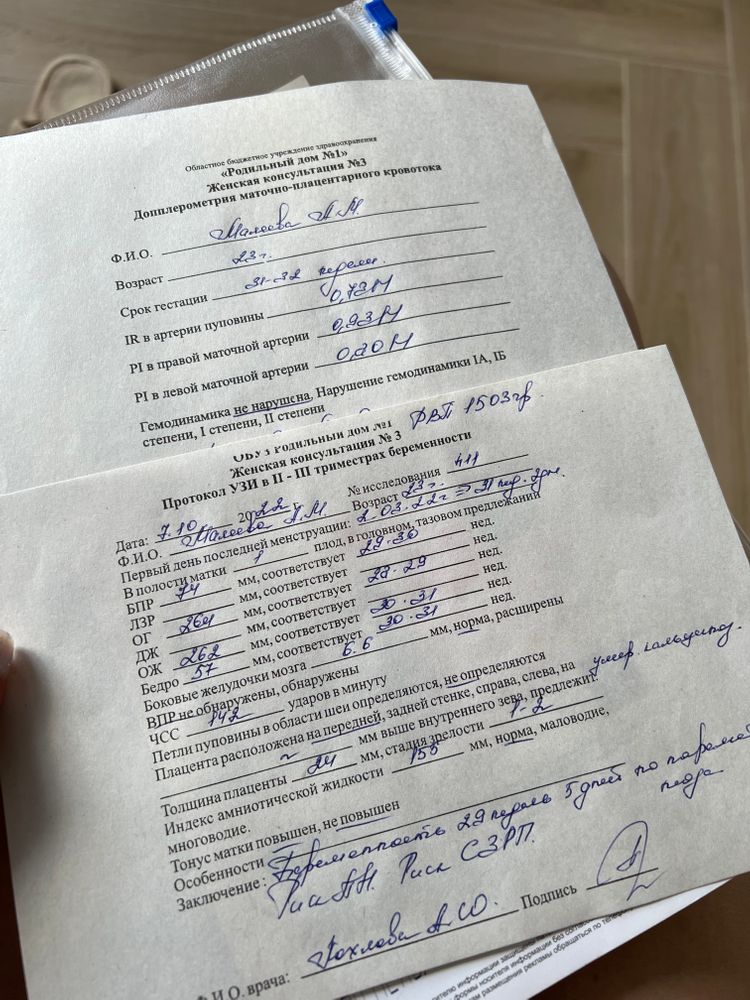 Областное бюджетное учреждение здравоохранения
«Родильный дом №1»
Женская консультация №3
Допплерометрия маточно-плацентарного кровотока
Ф.И.О. Малеева А.М.
Возраст 23 г.
Срок гестации 31-32 недели.
IR в артерии пуповины 0,73 N
PI в правой маточной артерии 0,93 N
PI в левой маточной артерии 0,80 N
Гемодинамика не нарушена, Нарушение гемодинамики IА, IБ
степени, I степени, II степени
ОБУЗ Родильный дом №1
Женская консультация № 3 РВП 1503 гр.
Протокол УЗИ в II - III триместрах беременности
Дата: 7.10 2022 г. № исследования 411
Ф.И.О. Малеева А.М Возраст 23 г.
Первый день последней менструации: 2.03.22 г ⇒ 31 нед. 2 дн.
В полости матки 1 плод, в головном, тазовом предлежании
БПР 74 мм, соответствует 29-30 нед.
ЛЗР мм, соответствует нед.
ОГ 264 мм, соответствует 28-29 нед.
ДЖ мм, соответствует нед.
ОЖ 262 мм, соответствует 30-31 нед.
Бедро 57 мм, соответствует 30-31 нед.
Боковые желудочки мозга 6.6 мм, норма, расширены
ВПР не обнаружены, обнаружены
ЧСС 142 ударов в минуту
Петли пуповины в области шеи определяются, не определяются
Плацента расположена на передней, задней стенке, справа, слева, на умер. кальциноз.
мм выше внутреннего зева, предлежит.
Толщина плаценты 24 мм, стадия зрелости 1-2
Индекс амниотической жидкости 155 мм, норма, маловодие,
многоводие.
Тонус матки повышен, не повышен
Особенности
Заключение: Беременность 29 недель 5 дней по парамет
плода
Риск СЗРП.
Ф.И.О. врача: Хохлова А.Ю. Подпись